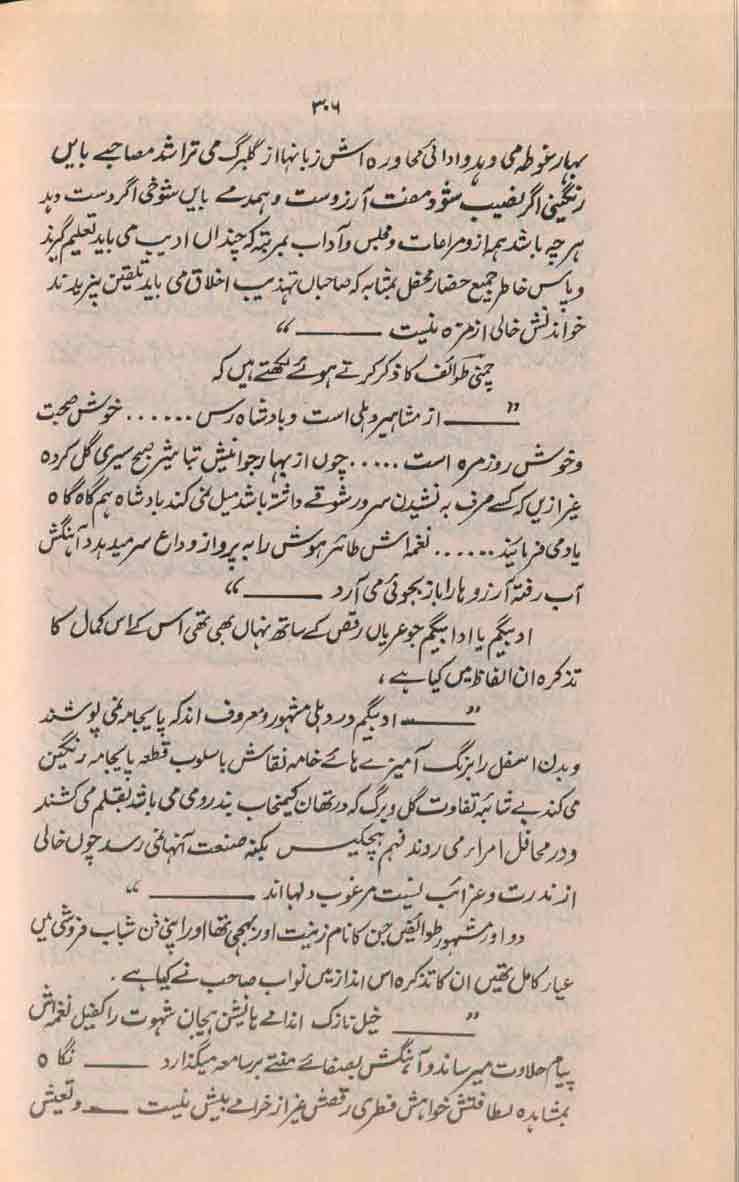 ۳۰۶
بہار غوطہ می دہد و ادائی محاورہ اش زبانہا از گلبرگ می تراشد مصاحبے بایں
رنگینی اگر نصیب شود مفت آرزوست و ہمدمے بایں شوخی اگر دست دہد
ہرچہ باشد ہم از و مراعات و مجلس و آداب بمرتبہ کہ چنداں ادیب می باید تعلیم گیرند
و پاس خاطر جمیع حضار محفل بمثابہ کہ صاحباں تہذیب اخلاق می باید تلقین پذیرند ند
خواندنش خالی از مزہ نیست ــــــــ “
چمنی طوائف کا ذکر کرتے ہوئے لکھتے ہیں کہ
” ــــــــ از مشاہیر دہلی است و بادشاہ رس ...... خوش صحبت
و خوش روزمرہ است ..... چوں از بہار جوانیش تباشیر صبح سیری گل کردہ
غیر ازیں کہ کسے صرف بہ نشیدن سرود شوقے داشتہ باشد میل نمی کند بادشاہ ہم گاہ گاہ
یاد می فرمایند ...... نغمہ اش طائر ہوش را بہ پرواز و داغ سر میدہد و آہنگش
آب رفتۂ آرزو ہا را باز بجوئی می آرد ــــــــ “
اد بیگم یا ادا بیگم جو عریاں رقص کے ساتھ نہاں بھی تھی اس کے اس کمال کا
تذکرہ ان الفاظ میں کیا ہے ،
” ــــــــ اد بیگم در دہلی مشہور و معروف اند کہ پائیجامہ نمی پوشند
و بدن اسفل را برنگ آمیزے ہائے خامہ نقاش باسلوب قطعہ پایجامہ رنگین
می کند بے شائبہ تفاوت گل و برگ کہ در تھان کیمخاب بند رومی می باشد بقلم می کشند
و در محافل امراء می روند فہم ہیچکیس بکنہ صنعت آنہا نمی رسد چوں خالی
از ندرت و غرائب نیست مرغوب دلہا اند ــــــــ “
دو اور مشہور طوائفیں جن کا نام زینت اور بھجی تھا اور اپنی فن شباب فروشی میں
عیار کامل تھیں ان کا تذکرہ اس انداز میں نواب صاحب نے کیا ہے .
” ــــــــ خیل نازک اندامے بالیش ہیجان شہوت را کفیل نغمہ اش
پیام حلاوت میرساند و آہنگش بصفائے مفتے بر سامعہ میگذارد ــــــــ نگاہ
بمشاہدہ لطافتش خواہش فطری رقصش غیر از خرامے بیش نیست ــــ و تعیش